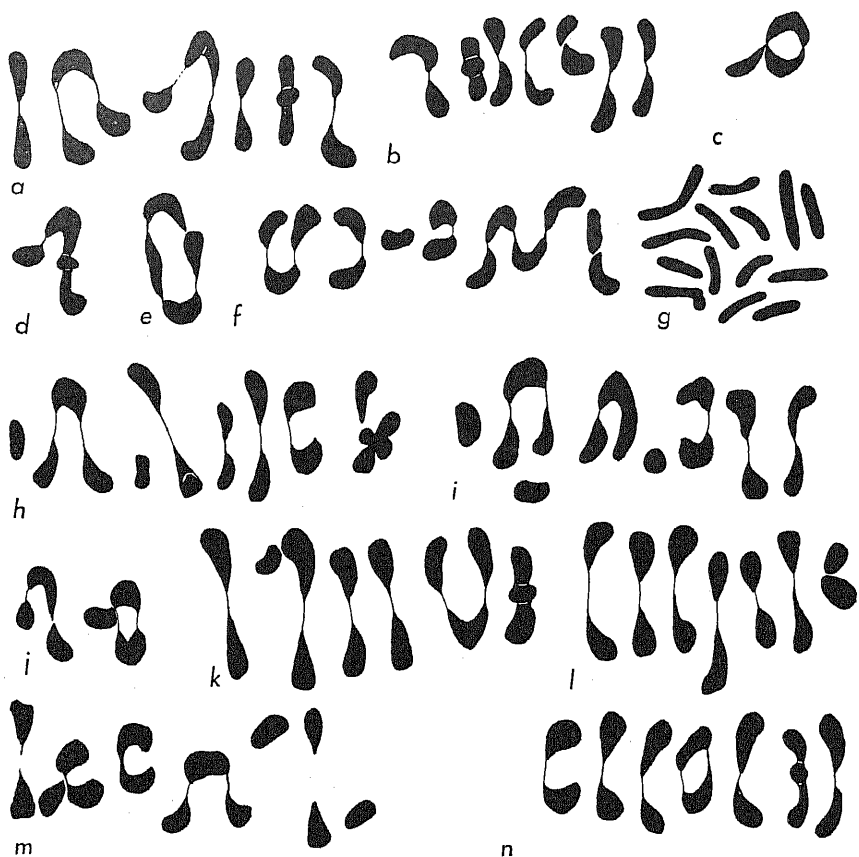 a
b
c
d
e
f
g
h
i
j
k
l
m
n